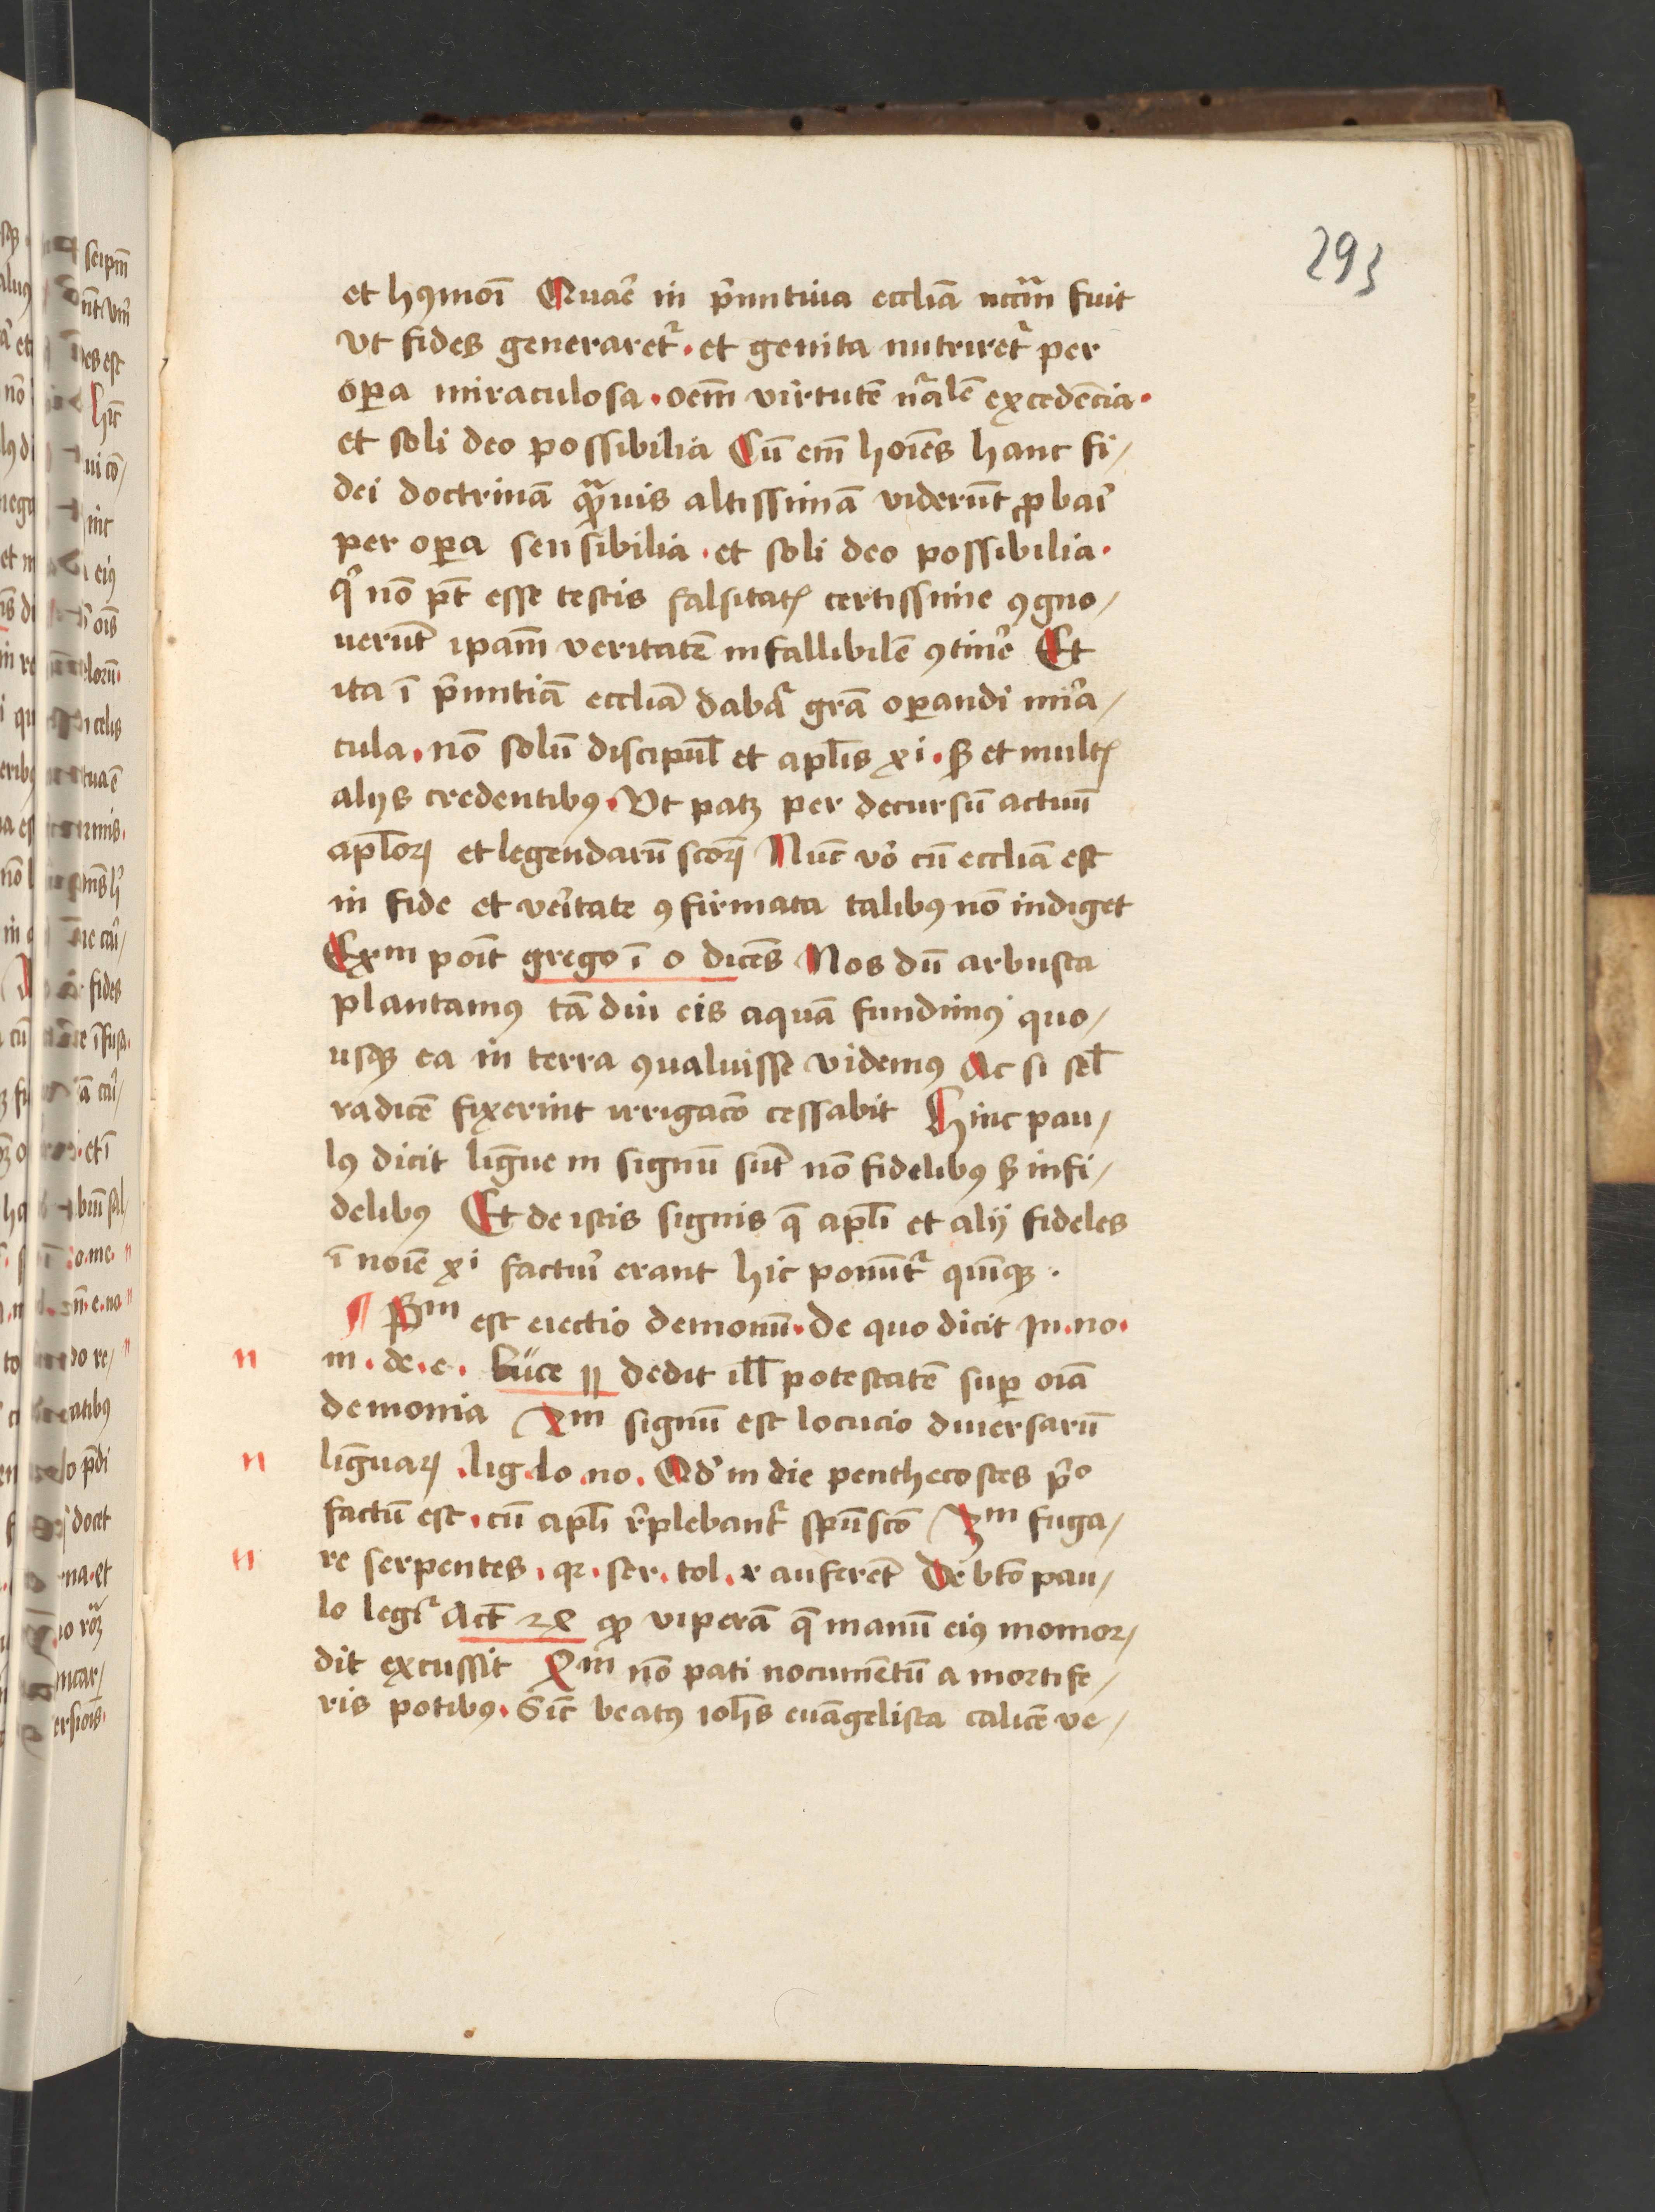 293
et hꝰmoī Quar̄ in pͥmitiua eccliā nccīm fuit
vt fides generaretᷣ · et genita nutriretᷣ per
oꝑa miraculosa · oēm virtutē nᷓalē excedēcia ·
et soli deo possibilia Cū em̄ hoīes hanc fi/
dei doctrinā qᷓuis altissimā viderūt ꝓbari
per oꝑa sensibilia · et soli deo possibilia ·
qͥ nō pt̄ esse testis falsitatꝭ certissime ꝯgno/
uerūt ipam̄ veritatē infallibilē ꝯtinē Et
ita ī pͥmitiā eccliā dabatᷣ grā oꝑandi mira/
cula · nō solū discipul̄ et apl̄is xi · sꝫ et multꝭ
alijs credentibꝰ · Vt patꝫ per decursū actuū
apl̄oꝝ et legendarū scōꝝ Nūc vo cū eccliā est
in fide et veritate ꝯfirmata talibꝰ nō indiget
Exᵐ poīt grego ī o dicēs Nos dū arbusta
plantamꝰ tā diu eis aquā fundimꝰ quo/
usqꝫ ea in terra ꝯualuisse videmꝰ Ac si sel̄
radicē fixerint irrigacō cessabit Hinc pau/
lꝰ dicit lingue in signū sūt nō fidelibꝰ sꝫ infi/
delibꝰ Et de istis signis q̄ apl̄i et alij fideles
ī noīe xi facturi erant hic ponūtᷣ quīqꝫ ·
¶ Pᵐ est eiectio demonū · De quo dicit In · no ·
m · de · e · Luce 11 dedit ill̄ potestatē suꝑ oīa
demonia 2ᵐ signū est locucio diuersarū
linguaꝝ · lig · lo · no · Qd in die penthecostes pͥᵒ
factū est · cū apl̄i rᵉplebantᷣ spūscō 3ᵐ fuga/
re serpentes · qꝛ · ser · tol · x auferēt De bt̄o pau/
lo legiᷣ Act 28 qꝫ viperā q̄ manū eiꝰ momor/
dit excussit 4ᵐ nō pati nocumētū a mortife/
ris potibꝰ · Sic̄ beatꝰ ioh̄s euāgelista calicē ve/
n
n
n